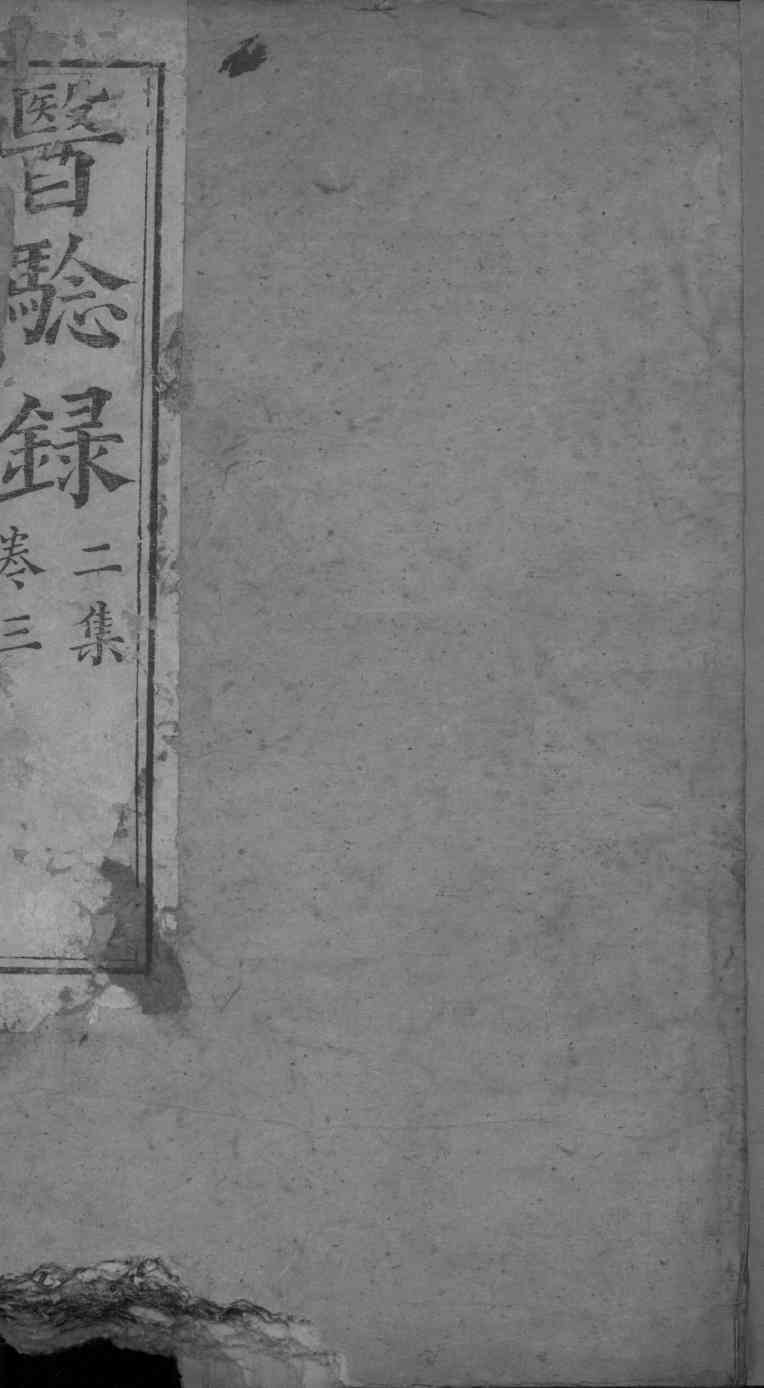 醫騐録
二集
卷三